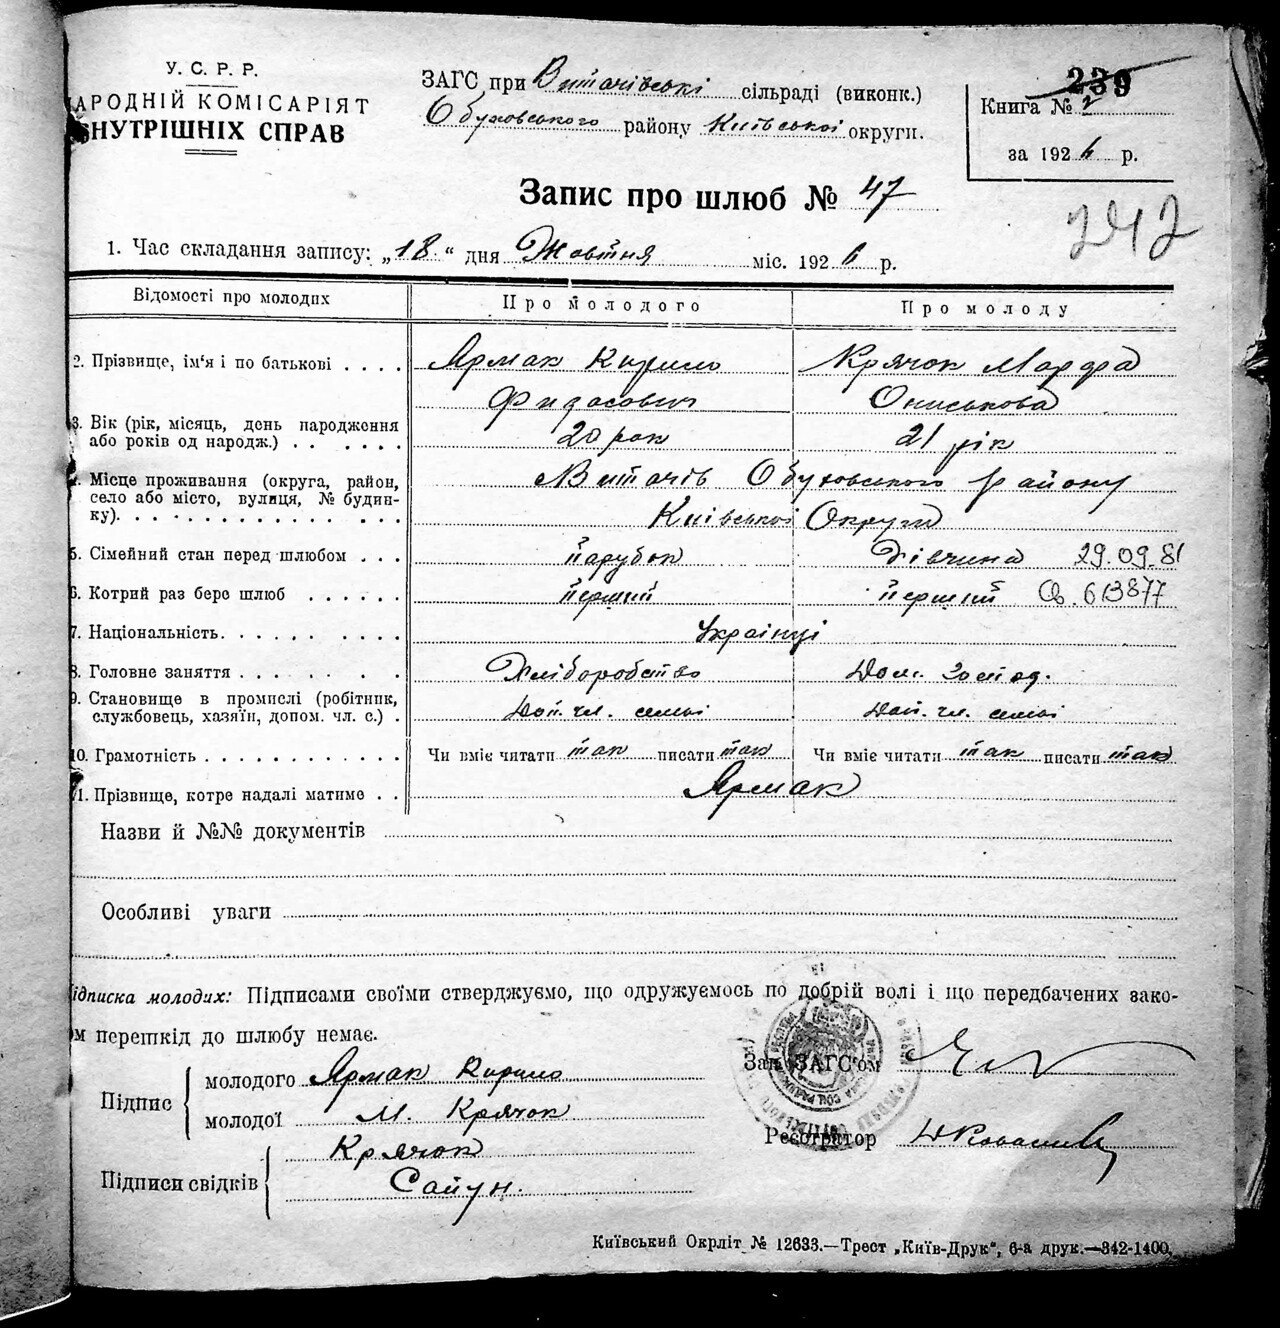 У. С. Р. Р.
АРОДНІЙ КОМІСАРІЯТ
ВНУТРІШНІХ СПРАВ
ЗАГС при Витачівські сільраді (виконк.)
Обуховського району Київської округи.
239
Книга № 2
за 1926 р.
Запис про шлюб № 47
242
1. Час складання запису: „18“ дня Жовтня міс. 1926 р.
Відомості про молодих Про молодого Про молоду
2. Прізвище, ім‘я і по батькові . . . . Ярмак Кирило Крячок Марфа
Ониськова
3. Вік (рік, місяць, день народження
або років од народж.) . . . . . . 20 рок 21 рік
. Місце проживання (округа, район, Витачів Обуховського району
село або місто, вулиця, № будин-
ку). . . . . . . . . . . . . . . . Київської Округи
5. Сімейний стан перед шлюбом . . . парубок Дівчина 29.09.81
6. Котрий раз бере шлюб . . . . . . перший перший Св. 613877
7. Національність. . . . . . . . . . Українці
8. Головне заняття . . . . . . . . Хліборобство Дом. Господ.
9. Становище в промислі (робітник,
службовець, хазяїн, допом. чл. с.) . Доп. чл. семьі Доп. чл. семьі
10. Грамотність . . . . . . . . . . . . Чи вміє читати так писати так Чи вміє читати так писати так
11. Прізвище, котре надалі матиме . . Ярмак
Назви й №№ документів
Особливі уваги
ідписка молодих: Підписами своїми стверджуємо, що одружуємось по добрій волі і що передбачених зако-
м перешкід до шлюбу немає.
Зав. ЗАГС‘ом
Підпис
молодого Ярмак Кирило
молодої М. Крячок
Реєстратор
Підписи свідків
Крячок
Сайун.
Київський Окрліт № 12633.—Трест „Київ-Друк“, 6-а друк.—342-1400.